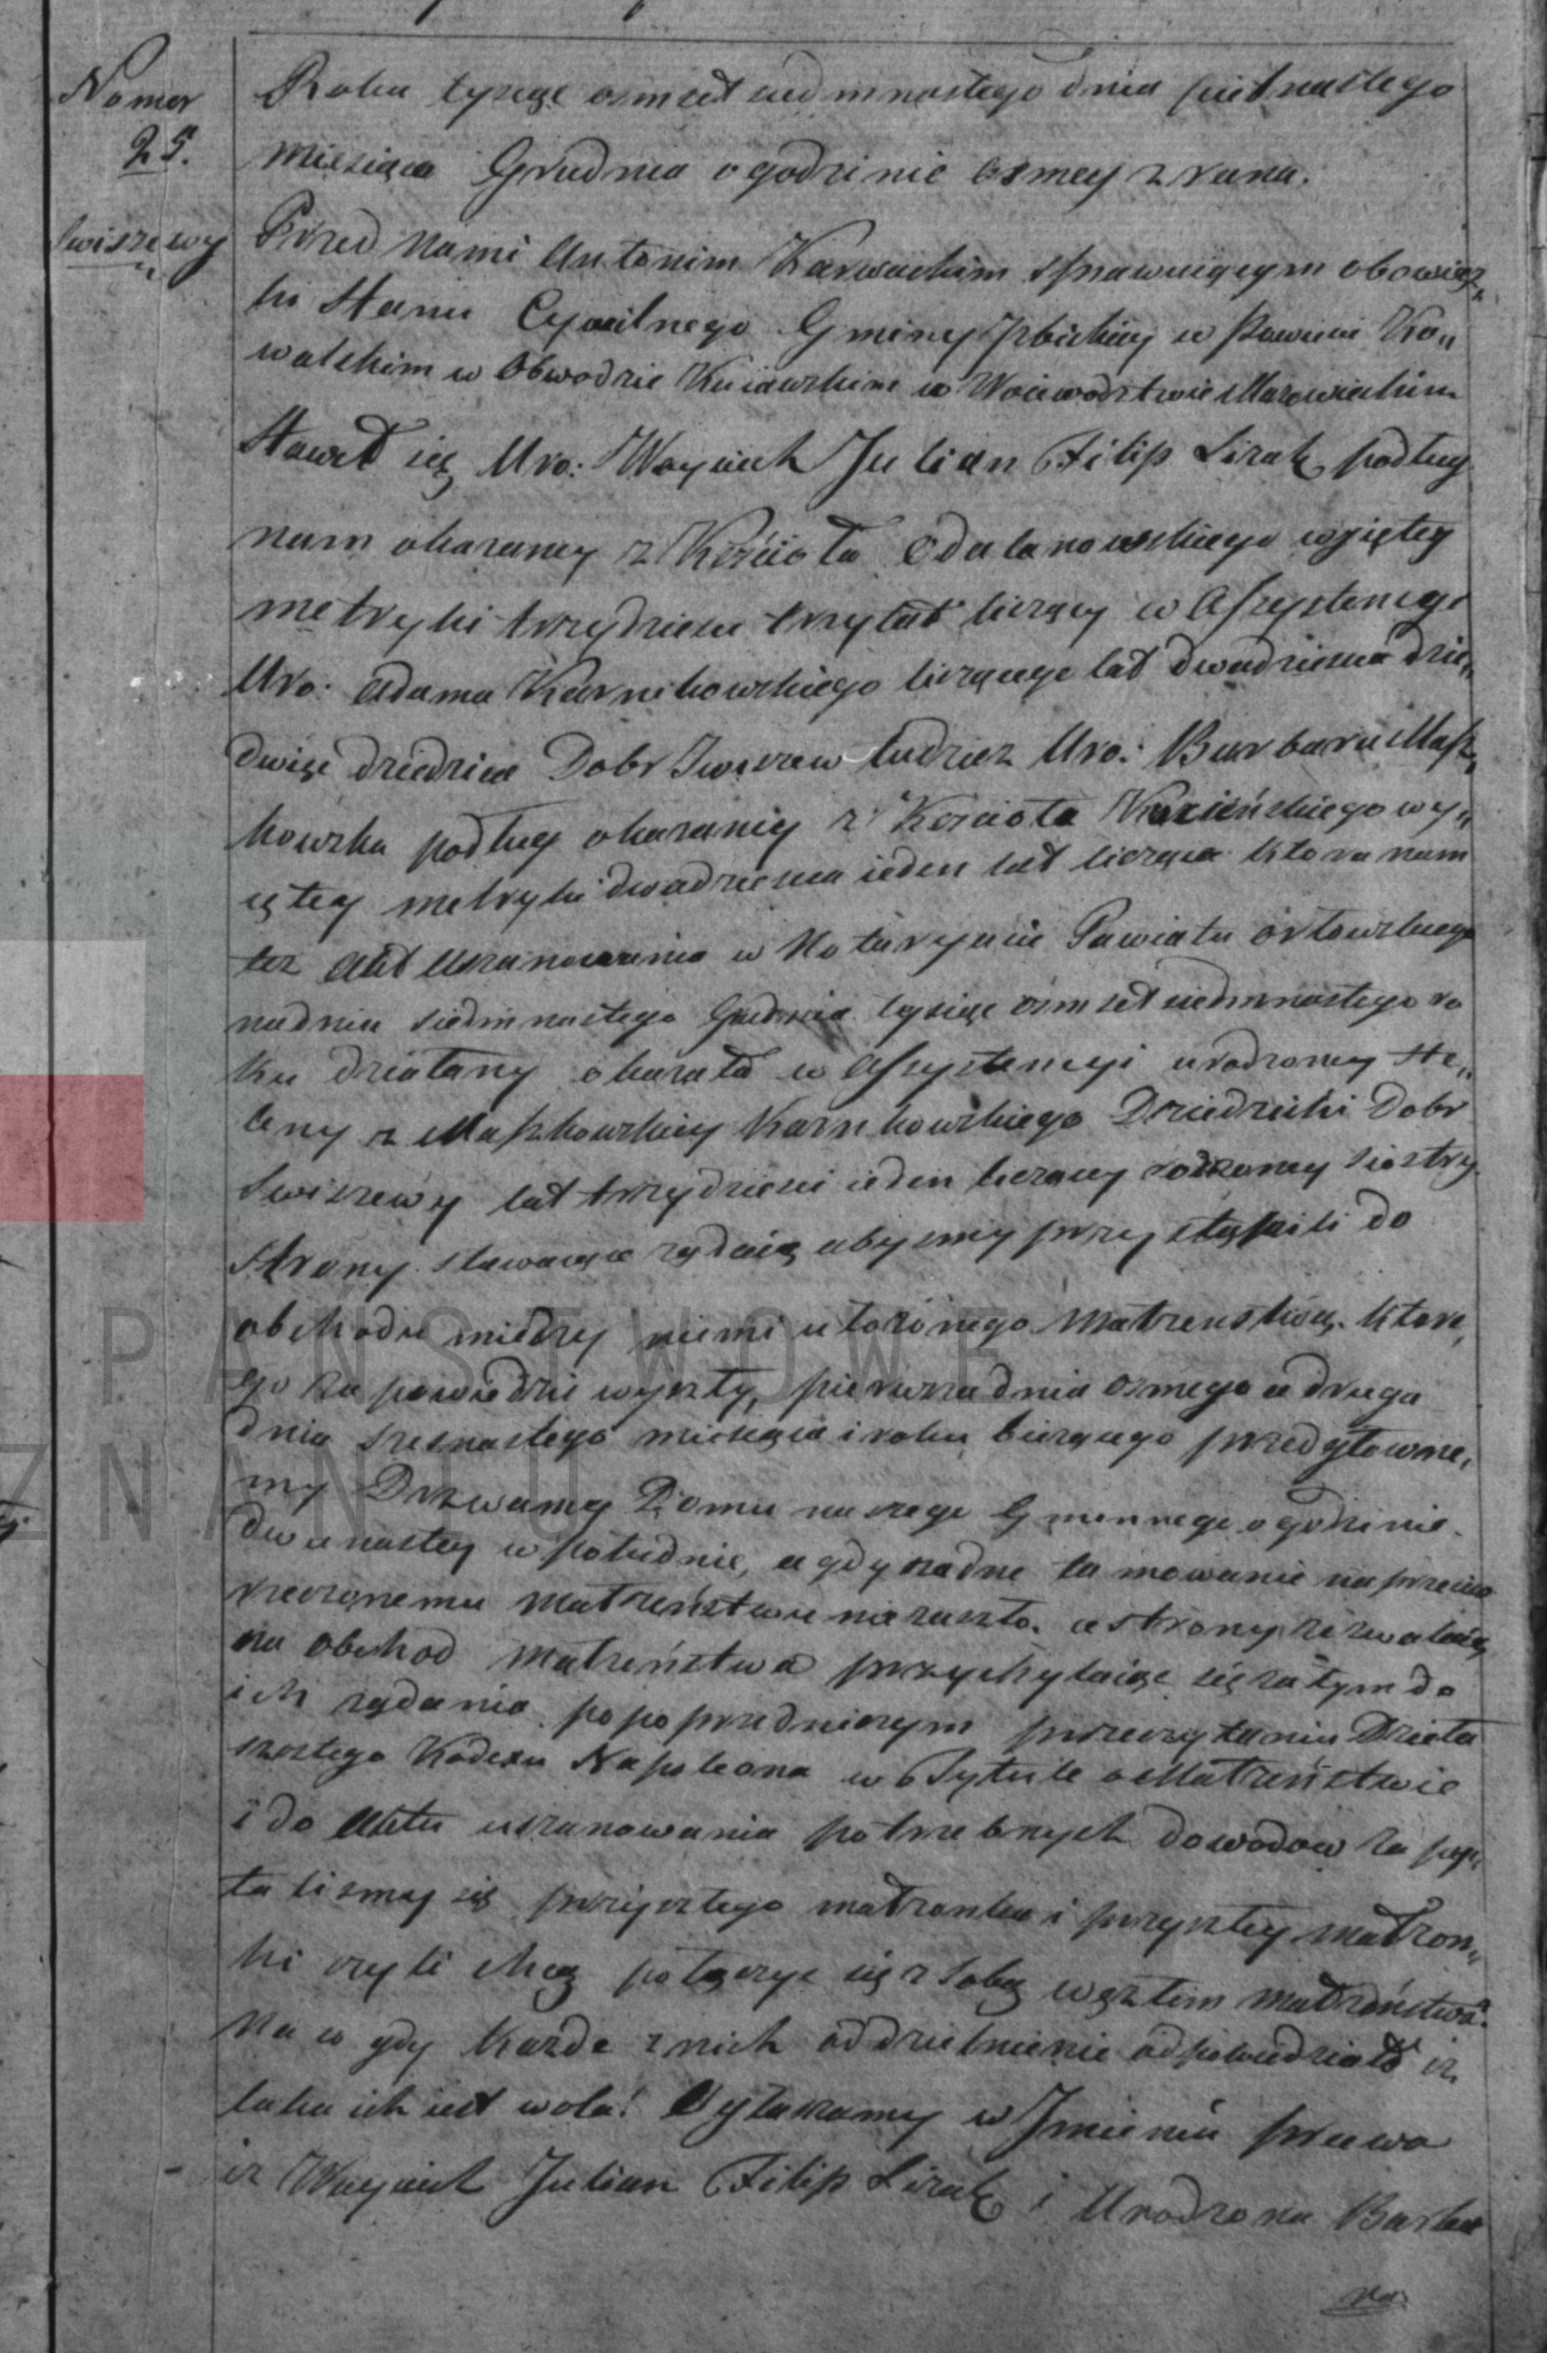 Numer
25.
Swiszewy
Roku tysiąc osmset siedmnastego dnia pietnastego
miesiąca Grudnia o godzinie osmey z rana.
Przed Nami Antonim Karwackim sprawuiącym obowiąz„
ki Stanu Cywilnego Gminy Izbickiey w Powiecie Ko„
walskim w Obwodzie Kuiawskim w Woiewodztwie Mazowieckim
Stawił się Uro: Woyciech Julian Filip Lirak podług
nam okazaney z Kościoła Odalanowskiego wyiętey
metryki trzydzieści trzy lat liczący w Assystencyi
Uro: Adama Karnkowskiego liczącego lat dwadzieścia dzie„
dwięć dziedzica Dobr Swiszew tudzież Uro: Barbara Masz„
kowska podług okazaney z Kościoła wy„
iętey metryki dwadzieścia ieden lat licząca która nam
też Akt Uszanowania w Notaryacie Powiatu Orłowskiego
na dniu siedmnastego Grudnia tysiąc osmset siedmnastego ro
ku działany okazała w Assystencyi urodzoney He„
leny z Maszkowskiey Karnkowskiego Dziedziczki Dobr
Swiszewy lat trzydzieści ieden liczącey rodzoney siostry
Strony stawaiące żądaią abyśmy przystąpili do
obchodu miedzy niemi ułożonego Małżeństwa, które„
go zapowiedzie wyszły, pierwsza dnia osmego a druga
dnia szesnastego miesiąca i roku bieżącego przed głowne„
my Drzwiamy Domu naszego Gminnego o godzinie
dwunastey w południe, a gdy żadne tamowanie naprzeciw
rzeczonemu Małżeństwu nie zaszło, a strony zezwalaią
na obchod Małżeństwa przychylaiąc się zatym do
ich żądania, po poprzedniczym przeczytaniu Działu
szostego Kodexu Napoleona w Tytule o Małżeństwie
i do Aktu uszanowania potrzebnych dowodow zapy„
taliśmy się przyszłego małżonka i przyszłey małżon„
ki czyli chcą połączyć się z sobą węzłem małżeństwa.
Na co gdy każde z nich oddzielnie odpowiedziało iż
taka ich iest wola! Ogłaszamy w Imieniu prawa
iż Woyciech Julian Filip Lirak i Urodzona Barba
ra
PAŃSTWOWE
ZNANIU